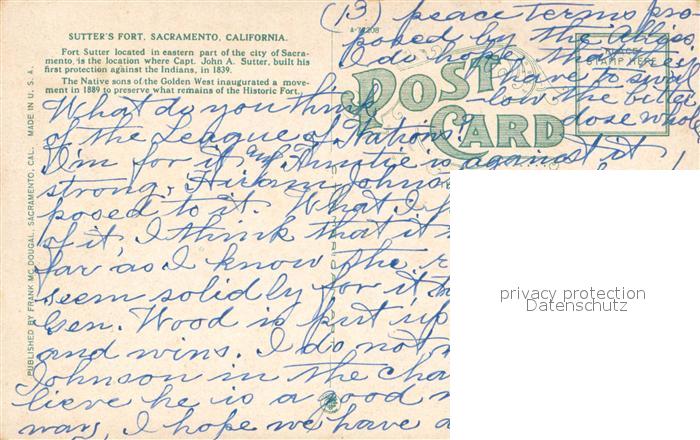 SUTTER'S FORT, SACRAMENTO, CALIFORNIA.
Fort Sutter located in eastern part of the city of Sacra-
mento, is the location where Capt. John A. Sutter, built his
first protection against the Indians, in 1839.
The Native sons of the Golden West inaugurated a move-
ment in 1889 to preserve what remains of the Historic Fort.
POST CARD
PLACE
STAMP HERE
PUBLISHED BY FRANK MC DOUGAL, SACRAMENTO, CAL. MADE IN U. S. A.
(13) peace terms pro-
posed by the Allies.
I do hope that they
have to swal-
low the bitter
dose whole
What do you think
of the League of Nations?
I'm for it and Auntie is against it
strong. Hiram Johns
posed to it. What I
of it, I think that it
far as I know the
seem solidly for it th
Gen. Wood is put up
and wins. I do not
Johnson in the cha
lieve he is a good
way, I hope we have a
privacy protection
Datenschutz